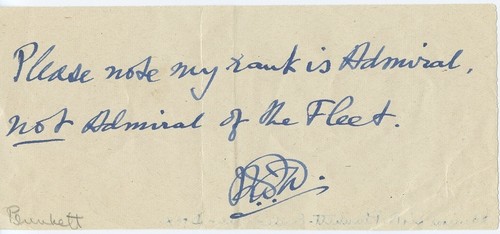 Please note my rank is Admiral,
not Admiral of the Fleet.
Plunkett